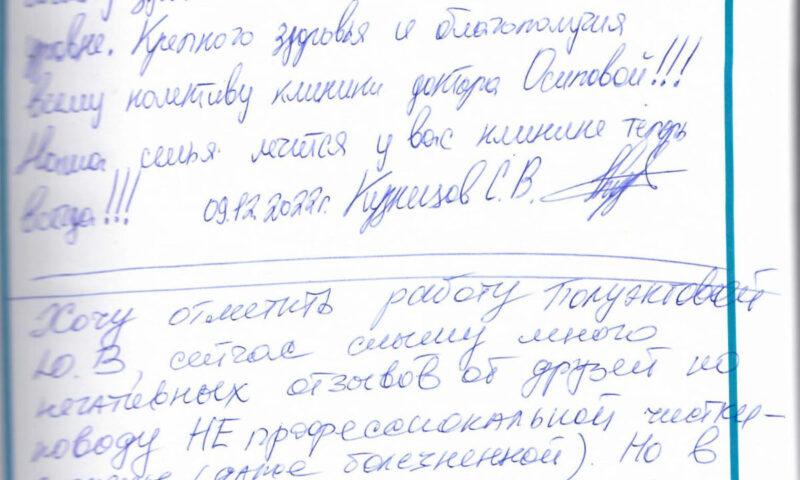 уровне. Крепкого здоровья и благополучия
всему колективу клиники доктора Осиповой!!!
Наша семья лечится у вас клинике теперь
всегда!!! 09.12.2022г. Кузнецов С. В.
Хочу отметить работу Полуэктовой
Ю. В, сейчас слышу много
негативных отзывов от друзей по
поводу НЕ профессиональной чистки
(даже болезненной). Но в